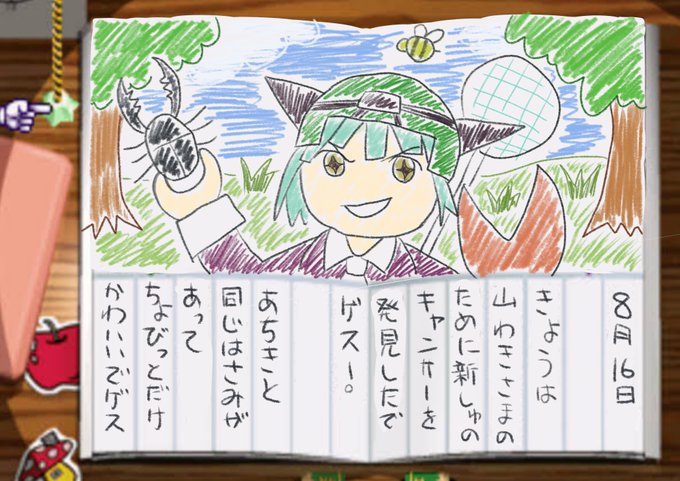 8月16日
きょうは
山わきさまの
ために新しゅの
キャンサーを
発見したで
ゲスー。
あちきと
同じはさみが
あって
ちょびっとだけ
かわいいでゲス